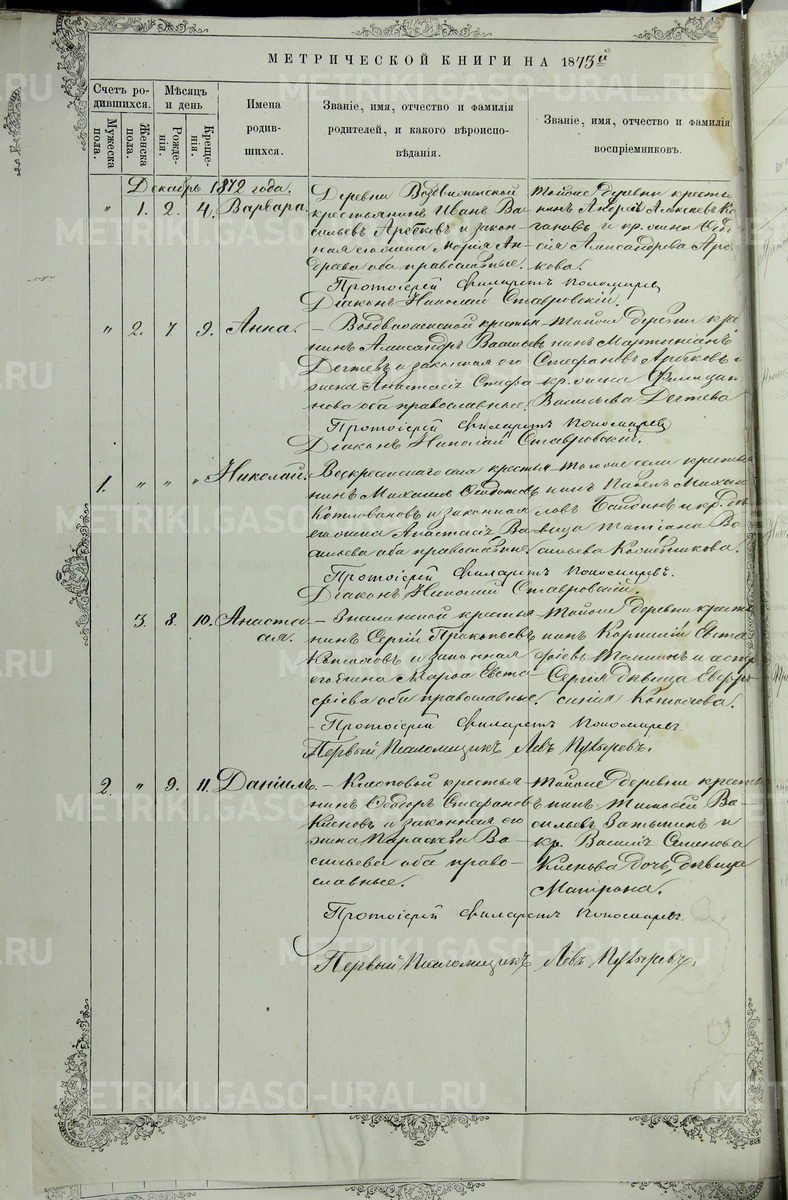 МЕТРИЧЕСКОЙ КНИГИ НА 1873й
Счетъ родившихся.
Мужеска пола.
Женска пола.
Мѣсяцъ и день
Рожденія.
Крещенія.
Имена родившихся.
Званіе, имя, отчество и фамилія родителей, и какого вѣроисповѣданія.
Званіе, имя, отчество и фамилія воспріемниковъ.
Декабрь 1872 года.
" 1. 2. 4. Варвара.
Деревни Воздвиженской
крестьянинъ Иванъ Ва-
сильевъ и закон-
ная его жена Марія Ан-
дреева оба православные.
Тойже деревни кресть-
нинъ Андрей Алексѣевъ
и кр. жена
сія Александрова
Протоіерей Филаретъ Пономаревъ
Діаконъ Николай Ставровскій.
" 2. 7 9. Анна.
– Воздвиженской крестья-
нинъ Александръ Васильевъ
Дегтевъ и законная его
жена Анастасія Стефа-
нова оба православные.
Тойже деревни кре-
нинъ Мартиніанъ
Стефановъ
кр. жена
Васильева Дегтева
Протоіерей Филаретъ Пономаревъ
Діаконъ Николай Ставровскій.
1. " " " Николай.
Воскресенскаго села крестья-
нинъ Михаилъ
Котловановъ и законная
его жена Анастасія Ва-
сильева оба православные.
Тогоже села крестья-
нинъ Павелъ Михаи-
ловъ и кр. дѣ-
вица Татіана Ва-
сильева
Протоіерей Филаретъ Пономаревъ.
Діаконъ Николай Ставровскій.
3. 8. 10. Анастасія.
крестья-
нинъ Сергій Прокопьевъ
и законная
его жена Марѳа Евста-
фіева оба православные.
Тойже деревни крестья-
нинъ Корнилій Евста-
фіевъ и
Сергія дѣвица Евфро-
синія
Протоіерей Филаретъ Пономаревъ.
Первый Псаломщикъ Левъ Пузыревъ.
2. " 9. 11. Даніилъ.
– крестья-
нинъ Ѳеодоръ Стефановъ
и законная его
жена Параскева Ва-
сильева оба право-
славные.
Тойже деревни крестья-
нинъ Тимоѳей Ва-
сильевъ и
кр. Василія Семенова
дочь дѣвица
Матрона.
Протоіерей Филаретъ Пономаревъ.
Первый Псаломщикъ Левъ Пузыревъ.
METRIKI.GASO-URAL.RU